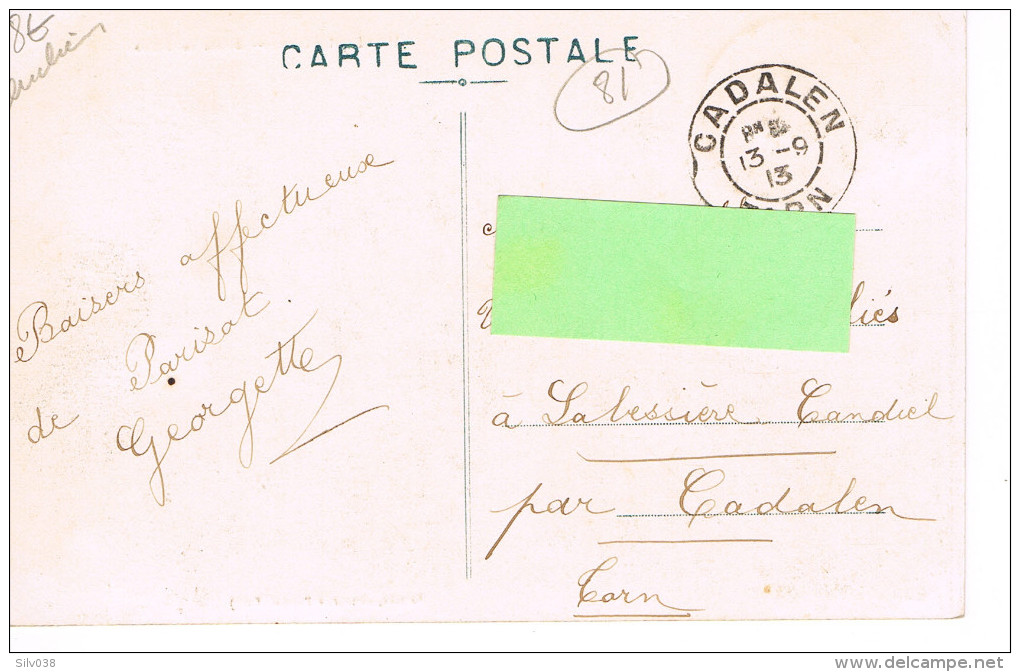 8€
CARTE POSTALE
81
CADALEN
13 -9
13
TARN
Baisers affectueux
de Parisot
Georgette
liés
à Labessière Candeil
par Cadalen
Tarn
Silv038
www.delcampe.net